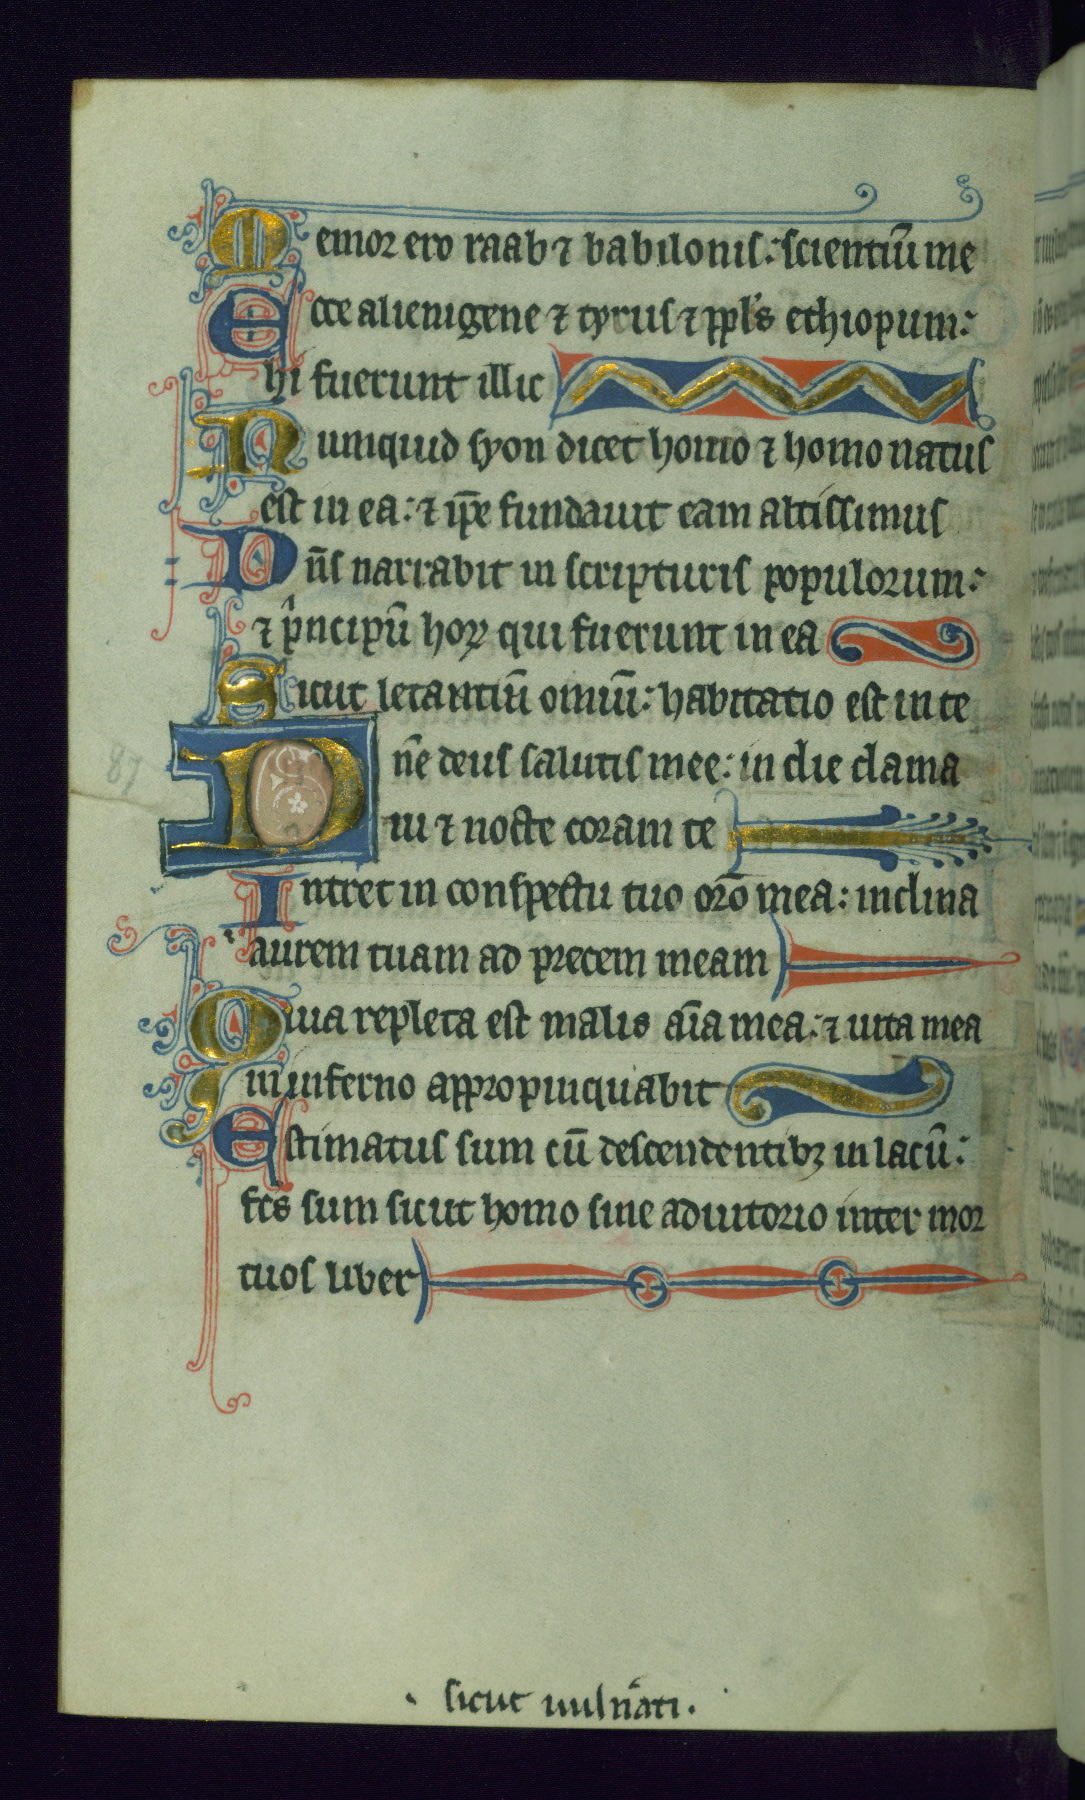 Memor ero raab ⁊ babilonis: scientiū me
Ecce alienigene ⁊ tyrus ⁊ ppl's ethiopum:
hi fuerunt illic
Numquid syon dicet homo ⁊ homo natus
est in ea: ⁊ ip̄e fundauit eam altissimus
Dn̄s narrabit in scripturis populorum:
⁊ pⁱncipū hoꝝ qui fuerunt in ea
Sicut letantiū omiū: habitatio est in te
Dn̄e deus salutis mee: in die clama
ui ⁊ nocte coram te
Intret in conspectu tuo orō mea: inclina
aurem tuam ad precem meam
Quia repleta est malis aīa mea: ⁊ uita mea
in inferno appropinquabit
Estimatus sum cū descendentibꝫ in lacū:
fcs sum sicut homo sine adiutorio inter mor
tuos liber
87
sicut uuln̄ati.